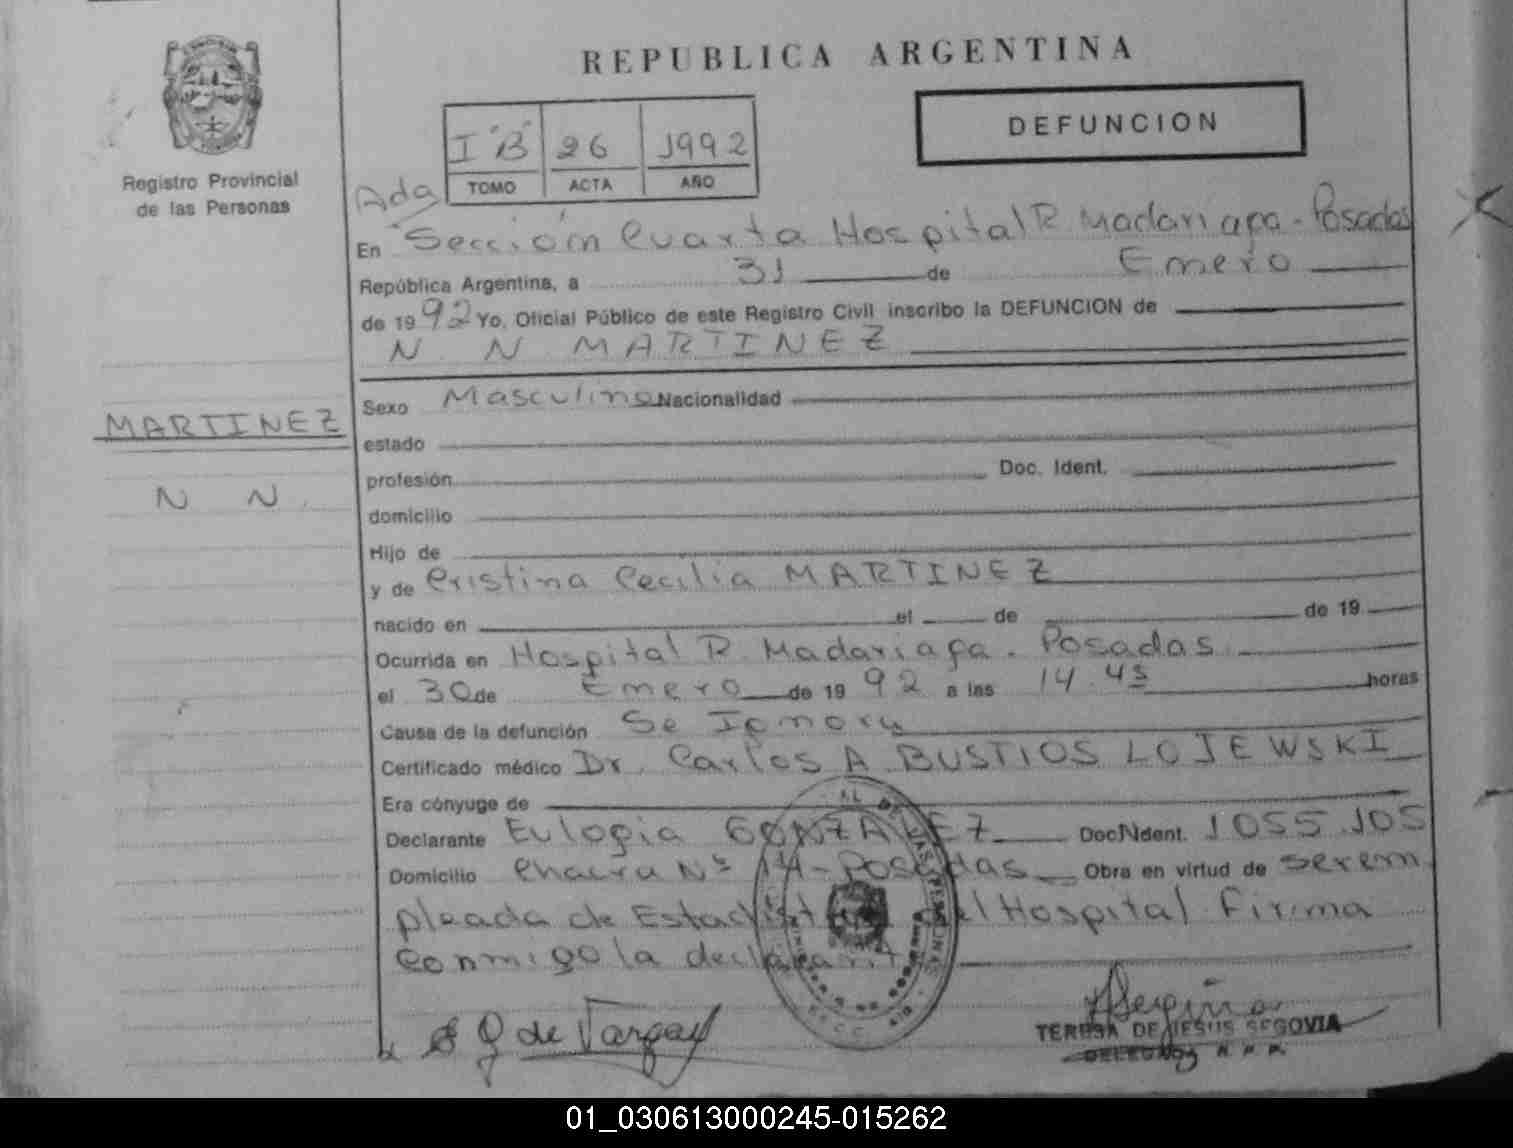 REPUBLICA ARGENTINA
Registro Provincial
de las Personas
I "B" 26 1992
TOMO ACTA AÑO
DEFUNCION
Ada
En Sección Cuarta Hospital R. Madariaga - Posadas
República Argentina, a 31 de Enero
de 1992 Yo, Oficial Público de este Registro Civil inscribo la DEFUNCION de
N N MARTINEZ
MARTINEZ
N N.
Sexo Masculino Nacionalidad
estado
profesión Doc. Ident.
domicilio
Hijo de
y de Cristina Cecilia MARTINEZ
nacido en el de de 19
Ocurrida en Hospital R. Madariaga. Posadas
el 30 de Enero de 1992 a las 14.45 horas
Causa de la defunción Se Ignora
Certificado médico Dr. Carlos A BUSTIOS LOJEWSKI
Era cónyuge de
Declarante Eulogia GONZALEZ Doc Ident. 1055.105
Domicilio Chacra Nº 14 - Posadas Obra en virtud de ser em
pleada de Estadist del Hospital. Firma
conmigo la declarante
G de Vargas
TERESA DE JESUS SEGOVIA
DELEGADA R. P. P.
01_030613000245-015262